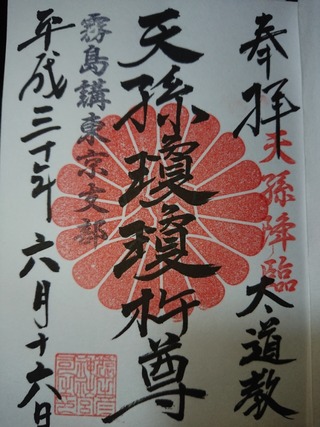 奉拝
天孫降臨
大道教
天孫瓊瓊杵尊
霧島講東京支部
平成三十年六月十六日